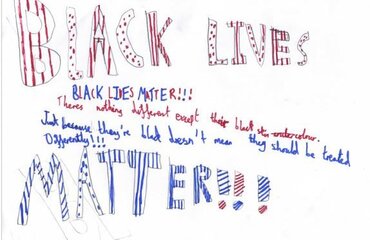 BLACK LIVES
BLACK LIVES MATTER!!!
Theres nothing different except their black skin colour.
Just because they're black doesn't mean they should be treated
Differently!!!
MATTER!!!